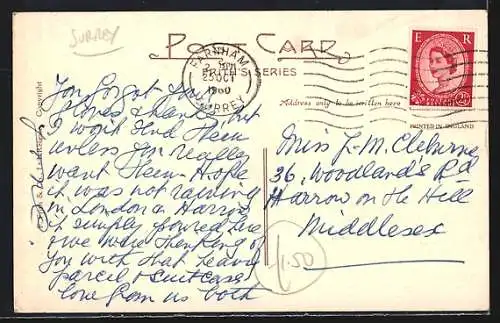 SURREY
POST CARD
FRITH'S SERIES
FARNHAM
25 OCT
1960
SURREY
E R
Address only to be written here
PRINTED IN ENGLAND
Copyright
You forgot
Gloves & Hanky but
I won't send them
unless you really
want them. Hope
it was not raining
in London or Harrow
it simply poured here
& we were thinking of
you with that heavy
parcel & suitcase
love from us both
Miss J-M. Cleburne
36, Woodlands Rd
Harrow on the Hill
Middlesex
1.50